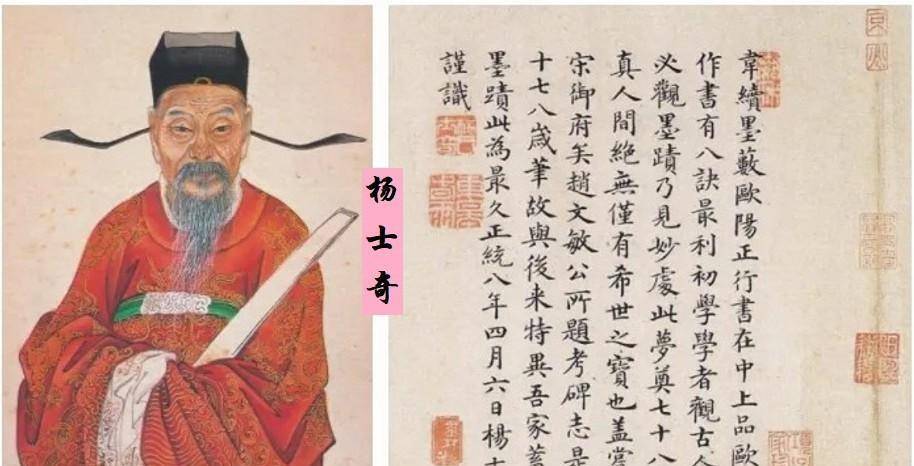 杨士奇
韋續墨藪歐陽正行書在中上品歐
作書有八訣最利初學學者觀古
必觀墨蹟乃見妙處此夢奠七十八
真人間絶無僅有希世之寶也盖嘗
宋御府矣趙文敏公所題考碑志是
十七八歲筆故與後来特異吾家蓄
墨蹟此為最久正統八年四月六日楊士
謹識